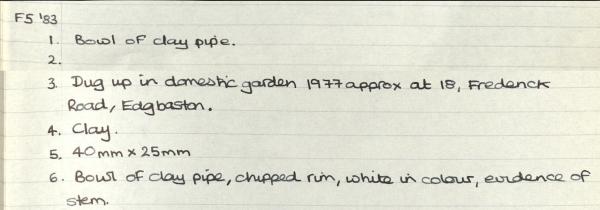 FS '83
1. Bowl of clay pipe.
2.
3. Dug up in domestic garden 1977 approx at 18, Frederick
Road, Edgbaston.
4. Clay.
5. 40mm x 25mm
6. Bowl of clay pipe, chipped rim, white in colour, evidence of
stem.